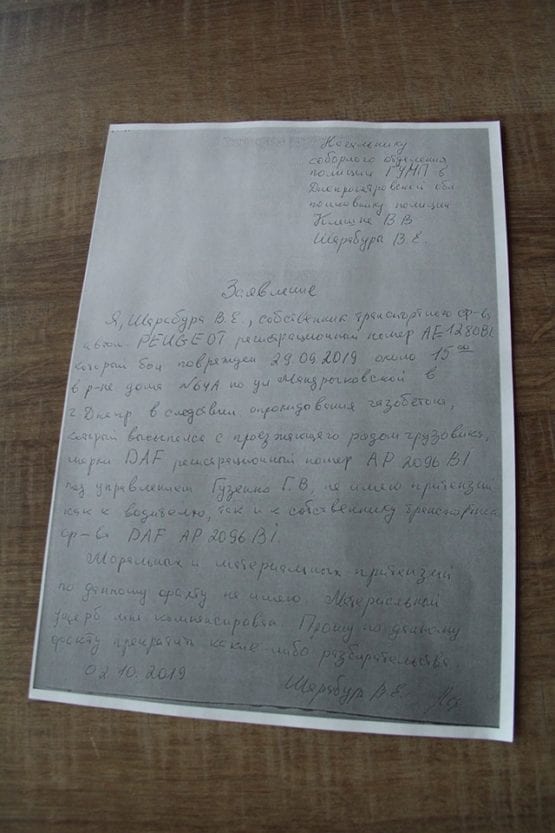 Начальнику
соборного отделения
полиции ГУНП в
Днепропетровской обл
полковнику полиции
В В
Шарабуры В. Е.
Заявление
Я, Шарабура В. Е., собственник транспортного ср-ва
авто PEUGEOT регистрационный номер AE1280BI
который был поврежден 29.09.2019 около 15 00
в р-не дома №64А по ул Мандрыковской в
г. Днепр в следствии опрокидования газобетона,
который высыпался с проезжающего рядом грузовика,
марки DAF регистрационный номер AP 2096 BI
под управлением Гузенко Г. В. не имею притензий
как к водителю, так и к собственнику транспортного
ср-ва DAF AP 2096 BI.
Моральных и материальных притензий
по данному факту не имею. Материальный
ущерб мне компенсирован. Прошу по данному
факту прекратить какие либо разбирательства
02.10.2019
Шарабура В. Е.